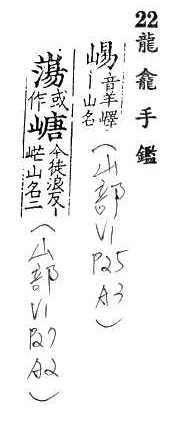 22 龍龕手鑑
崵音羊嶧
—山名
(山部 V1 P25 A3)
或作嵣今徒浪反—
㟐山名二
(山部 V1 P27 A2)